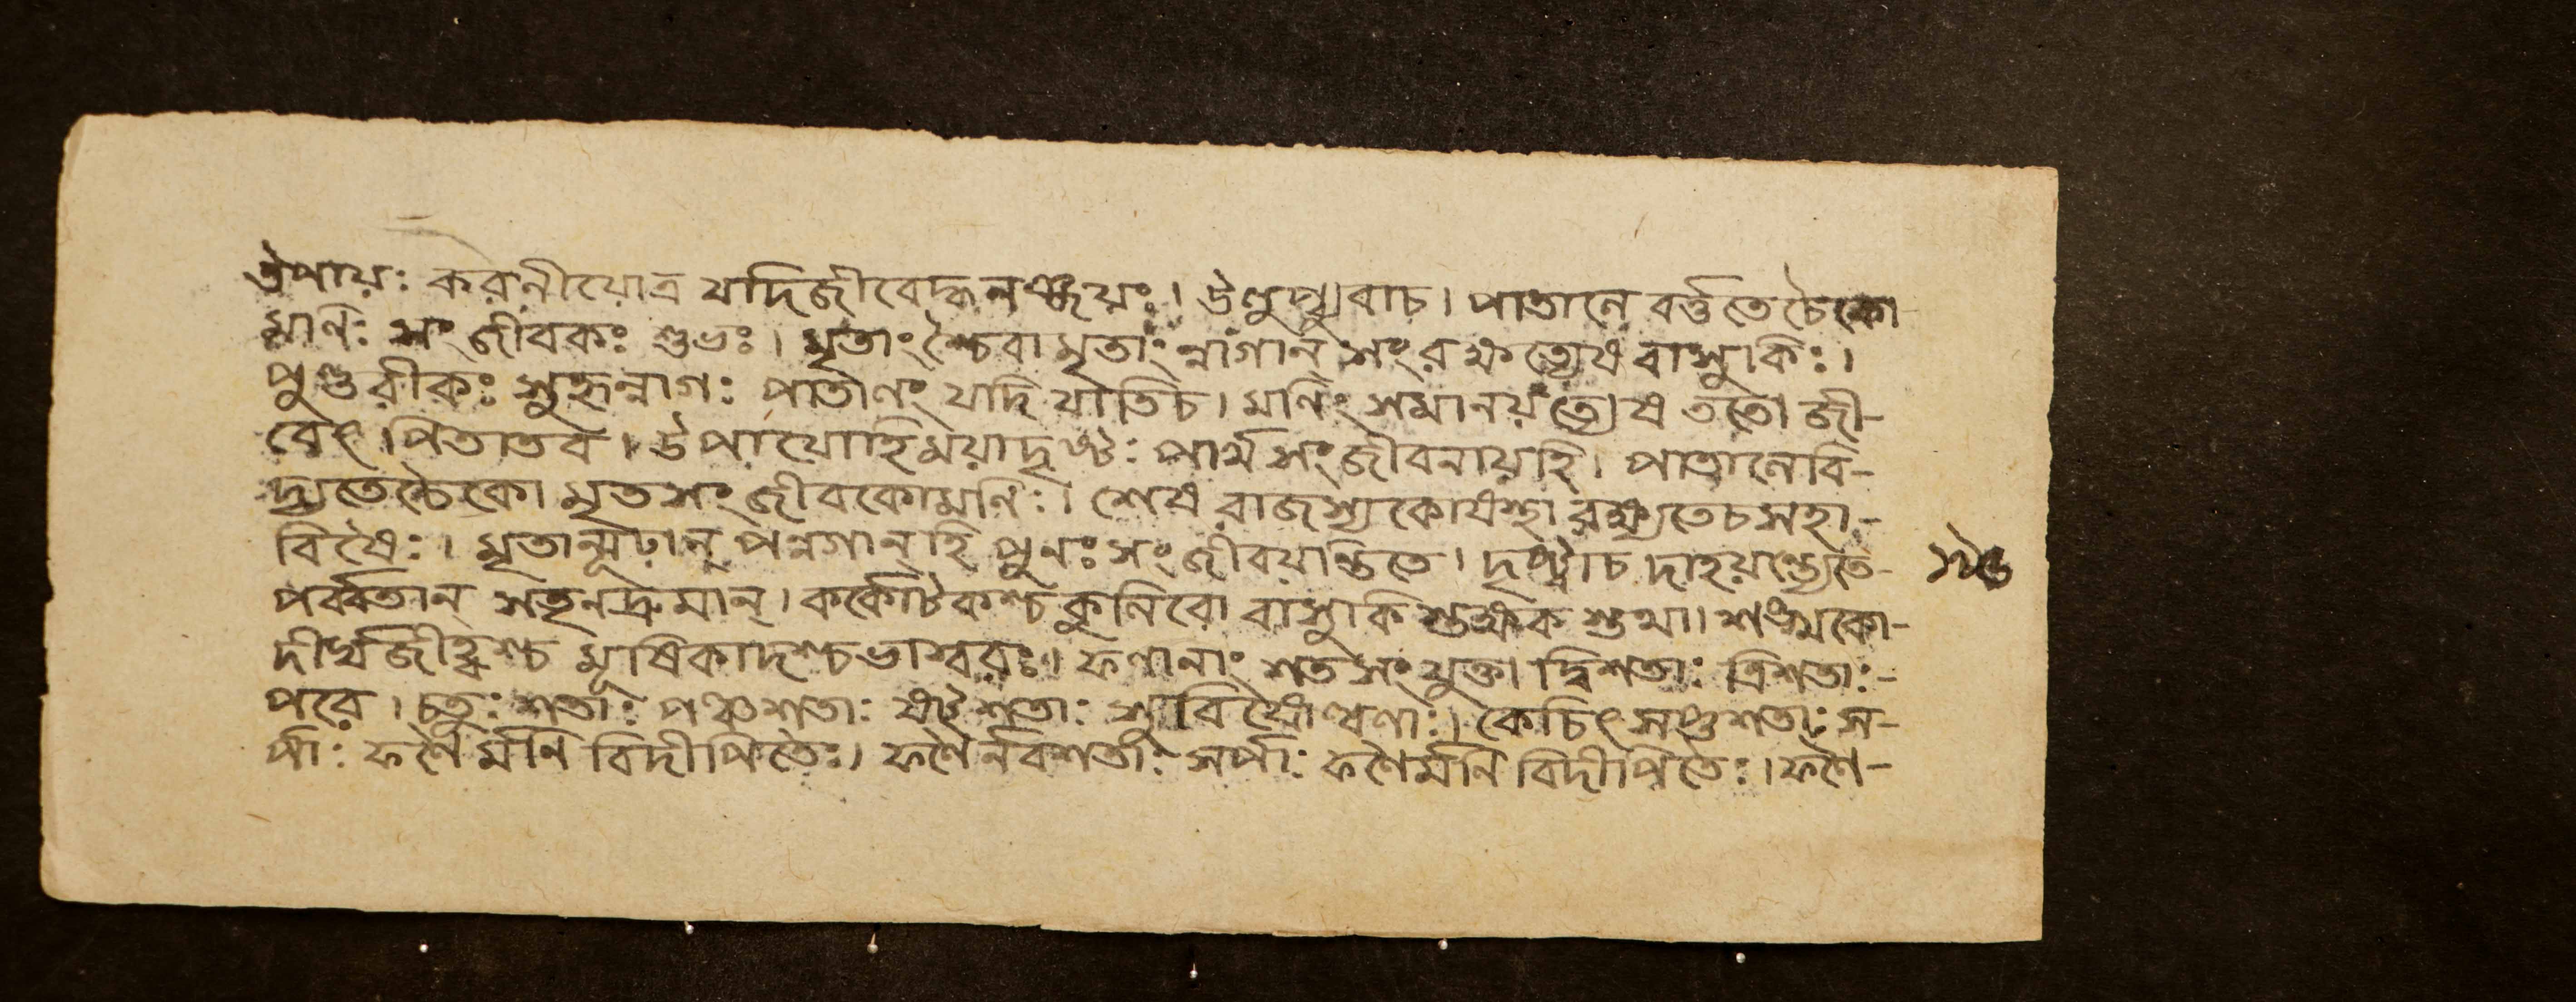 উপায়ঃ করনীয়োত্র যদিজীবেদ্ধনঞ্জয়ঃ। উলুপ্যুবাচ। পাতালে বর্ত্ততে চৈকো
মণিঃ সংজীবকঃ শুভঃ। মৃতাংশ্চৈবামৃতাংন্নাগান্ শংরক্ষত্যেষ বাসুকিঃ।
পুণ্ডরীকঃ সুহৃন্নাগঃ পাতালং যদি যাতিচ। মণিং সমানয়ত্যেষ ততো জী-
বেৎ পিতাতব। উপায়োহিময়াদৃষ্টঃ পার্থসংজীবনায়হি। পাতালেবি-
দ্যতেচৈকো মৃতসংজীবকোমণিঃ। শেষরাজশ্যকোষস্থো রক্ষ্যতেচসহা-
বিষৈঃ। মৃতান্মূঢান্ পন্নগান্হি পুনঃ সংজীবয়ন্তিতে। দৃষ্ট্বাচ দাহয়ন্ত্যেতে-
পর্ব্বতান্ সহনদ্রুমান্। কর্কোটকশ্চ কুলিরো বাসুকি স্তক্ষক স্তথা। শঙ্খকো-
দীর্ঘজীহ্বশ্চ মূষিকাদশ্চভাশ্বরঃ। ফণানাং শতসংযুক্তা দ্বিশতাঃ ত্রিশতাঃ-
পরে। চতুঃশতাঃ পঞ্চশতাঃ ষট্শতাঃ সুবিষোল্বণাঃ। কেচিৎ সপ্তশতাঃ স-
র্পাঃ ফণৈর্মনি বিদীপিতৈঃ। ফণৈর্নবশতাঃ সর্পাঃ ফণৈর্মনি বিদীপিতৈঃ। ফণৈ-